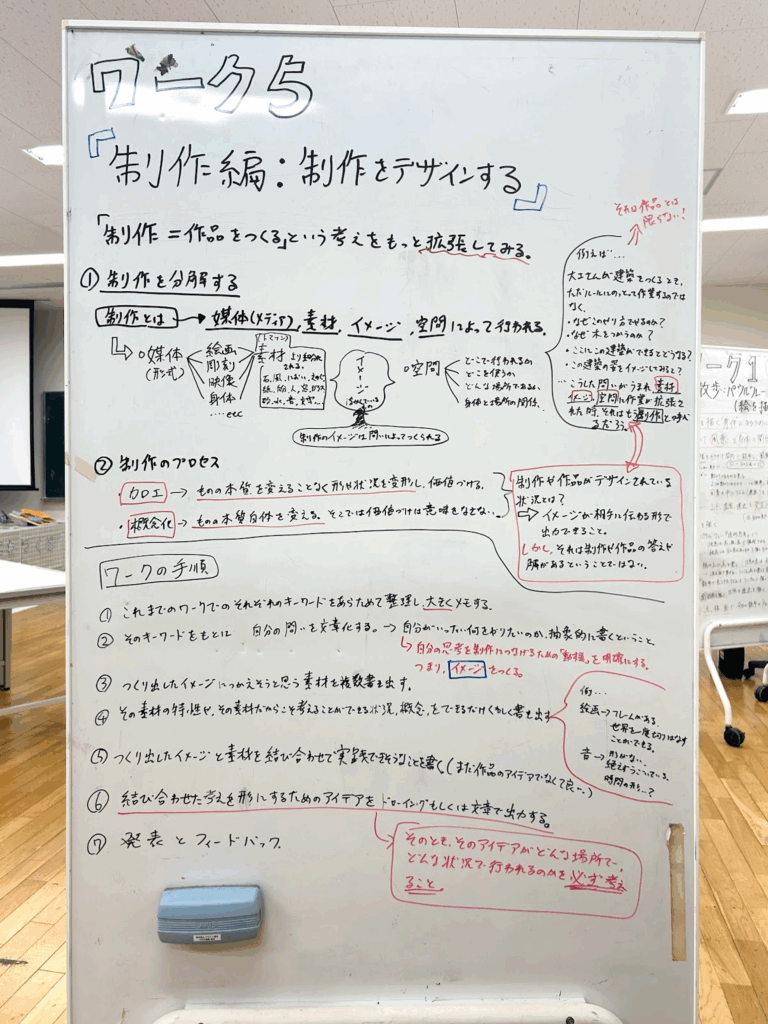 ワーク5
『制作編：制作をデザインする』
「制作＝作品をつくる」という考えをもっと拡張してみる。
① 制作を分解する
制作とは → 媒体(メディア)、素材、イメージ、空間によって行われる。
○媒体
(形式)
絵画
彫刻
映像
身体
…etc
素材
石、風、におい、
紙、
水、音、
イメージ
制作のイメージは問いによってつくられる
○空間
どこで行われるか
どこを使うか
どんな場所であるか
身体と場所の関係…
それは作品とは
限らない！
例えば…
大工さんが建築をつくるとき、
ただルールにのっとって作業するのでは
なく、
・なぜこのやり方でやるのか？
・なぜ木をつかうのか？
・ここにこの建築ができるとどうなる？
・この建築の姿をイメージしてみると？
… こうした問いがうまれ、素材、
イメージ、空間に作業が拡張さ
れた時、それはも制作と呼べ
るだろう。
② 制作のプロセス
・加工 → ものの本質を変えることなく形や状況を変形し、価値づける。
・概念化 → ものの本質自体を変える。そこでは価値づけは意味をなさない。
制作や作品がデザインされている
状況とは？
⇒ イメージが相手に伝わる形で
出力できること。
しかし、それは制作や作品の答えや
解があるということではない。
ワークの手順
① これまでのワークでのそれぞれのキーワードをあらためて整理し、大きくメモする。
② そのキーワードをもとに 自分の問いを文章化する。→ 自分がいったい何をやりたいのか、抽象的に書くということ
↳ 自分の思考を制作につなげるための「動機」を明確にする。
つまり、イメージをつくる。
③ つくり出したイメージにつかえそうと思う素材を複数書き出す。
④ その素材の特性や、その素材だからこそ考えることができる状況、概念、をできるだけくわしく書き出す
例…
絵画→フレームがある、
世界を一度切りはなす
ことができる。
音→形がない、
絶えずうごいている、
時間の形…？
⑤ つくり出したイメージと素材を結び合わせて実践できそうなことを書く(まだ作品のアイデアでなくて良い)
⑥ 結び合わせた考えを形にするためのアイデアをドローイングもしくは文章で出力する。
⑦ 発表とフィードバック
そのとき、そのアイデアがどんな場所で、
どんな状況で行われるのかを必ず考え
ること。
ワーク1